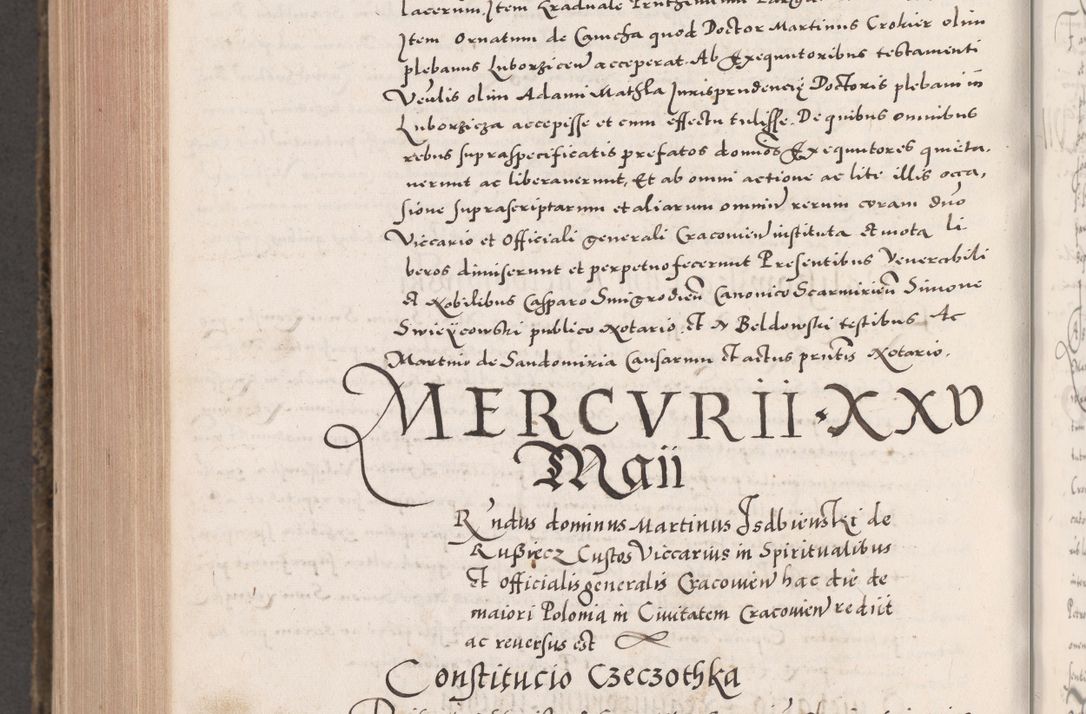 lacerum. Item Graduale
Item Ornatum de Camcha quod Doctor Martinus Crokier olim
plebanus Luborzicen acceperat. Ab Exequutoribus testamenti
Venlis olim Adami Mathła Jurisprudencię Doctoris plebani in
Luborzicza accepisse et cum effectu tulisse. De quibus omnibus
rebus supraspecificatis prefatos dominos Exequutores quieta,
nerunt ac liberanerunt, Et ab omni actione ac lite illis occa,
sione suprascriptarum et aliarum omnium rerum coram dno
Viccario et Officiali generali Cracouien instituta et mota li
beros dimiserunt et perpetuo fecerunt Presentibus Venerabili
et Nobilibus Casparo Smigrodien Canonico Scarmirien Simone
Swieÿcowski publico Notario, et N Beldowski testibus Ac
Martino de Sandomiria Causarum et actus pntis Notario.
MERCVRII · XXV
Maii
Rndus dominus Martinus Isdbienski de
Rußiecz Custos Viccarius in Spiritualibus
et officialis generalis Cracouien hac die de
maiori Polonia in Ciuitatem Cracouien rediit
ac reuersus est
Constitucio Czeczothka